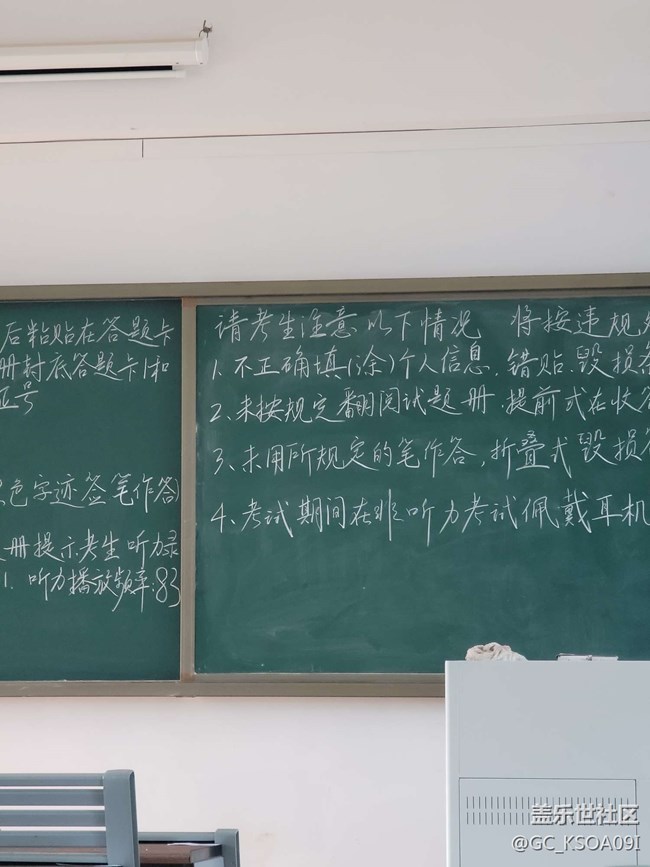 后粘贴在答题卡
册封底答题卡1和
证号
色字迹签笔作答)
册提示考生听力录
1. 听力播放频率:83
请考生注意以下情况 将按违规处
1. 不正确填(涂)个人信息, 错贴、毁损答
2、未按规定翻阅试题册、提前式在收答
3、未用所规定的笔作答,折叠式毁损答
4、考试期间在非听力考试佩戴耳机
盖乐世社区
@GC_KSOA09I